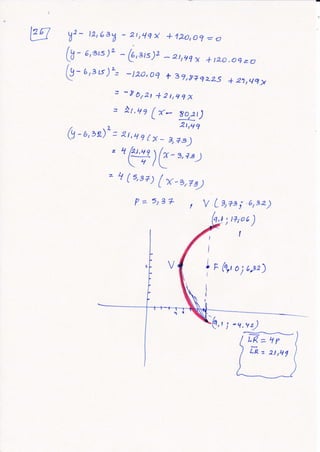 126
y² - 12,63y - 21,49x + 120,09 = 0
(y - 6,315)² - (6,315)² - 21,49x + 120.09 = 0
(y - 6,315)² = -120,09 + 39,879225 + 21,49x
= -80,21 + 21,49x
= 21.49 (x - 80,21/21,49)
(y - 6,32)² = 21,49 (x - 3,73)
= 4 (21,49/4) (x - 3,73)
= 4 (5,37) (x - 3,73)
p = 5,37 , V (3,73; 6,32)
(9,1; 17,06)
V
F (9,10; 6,32)
(9,1; -4.42)
LR = 4P
LR = 21,49